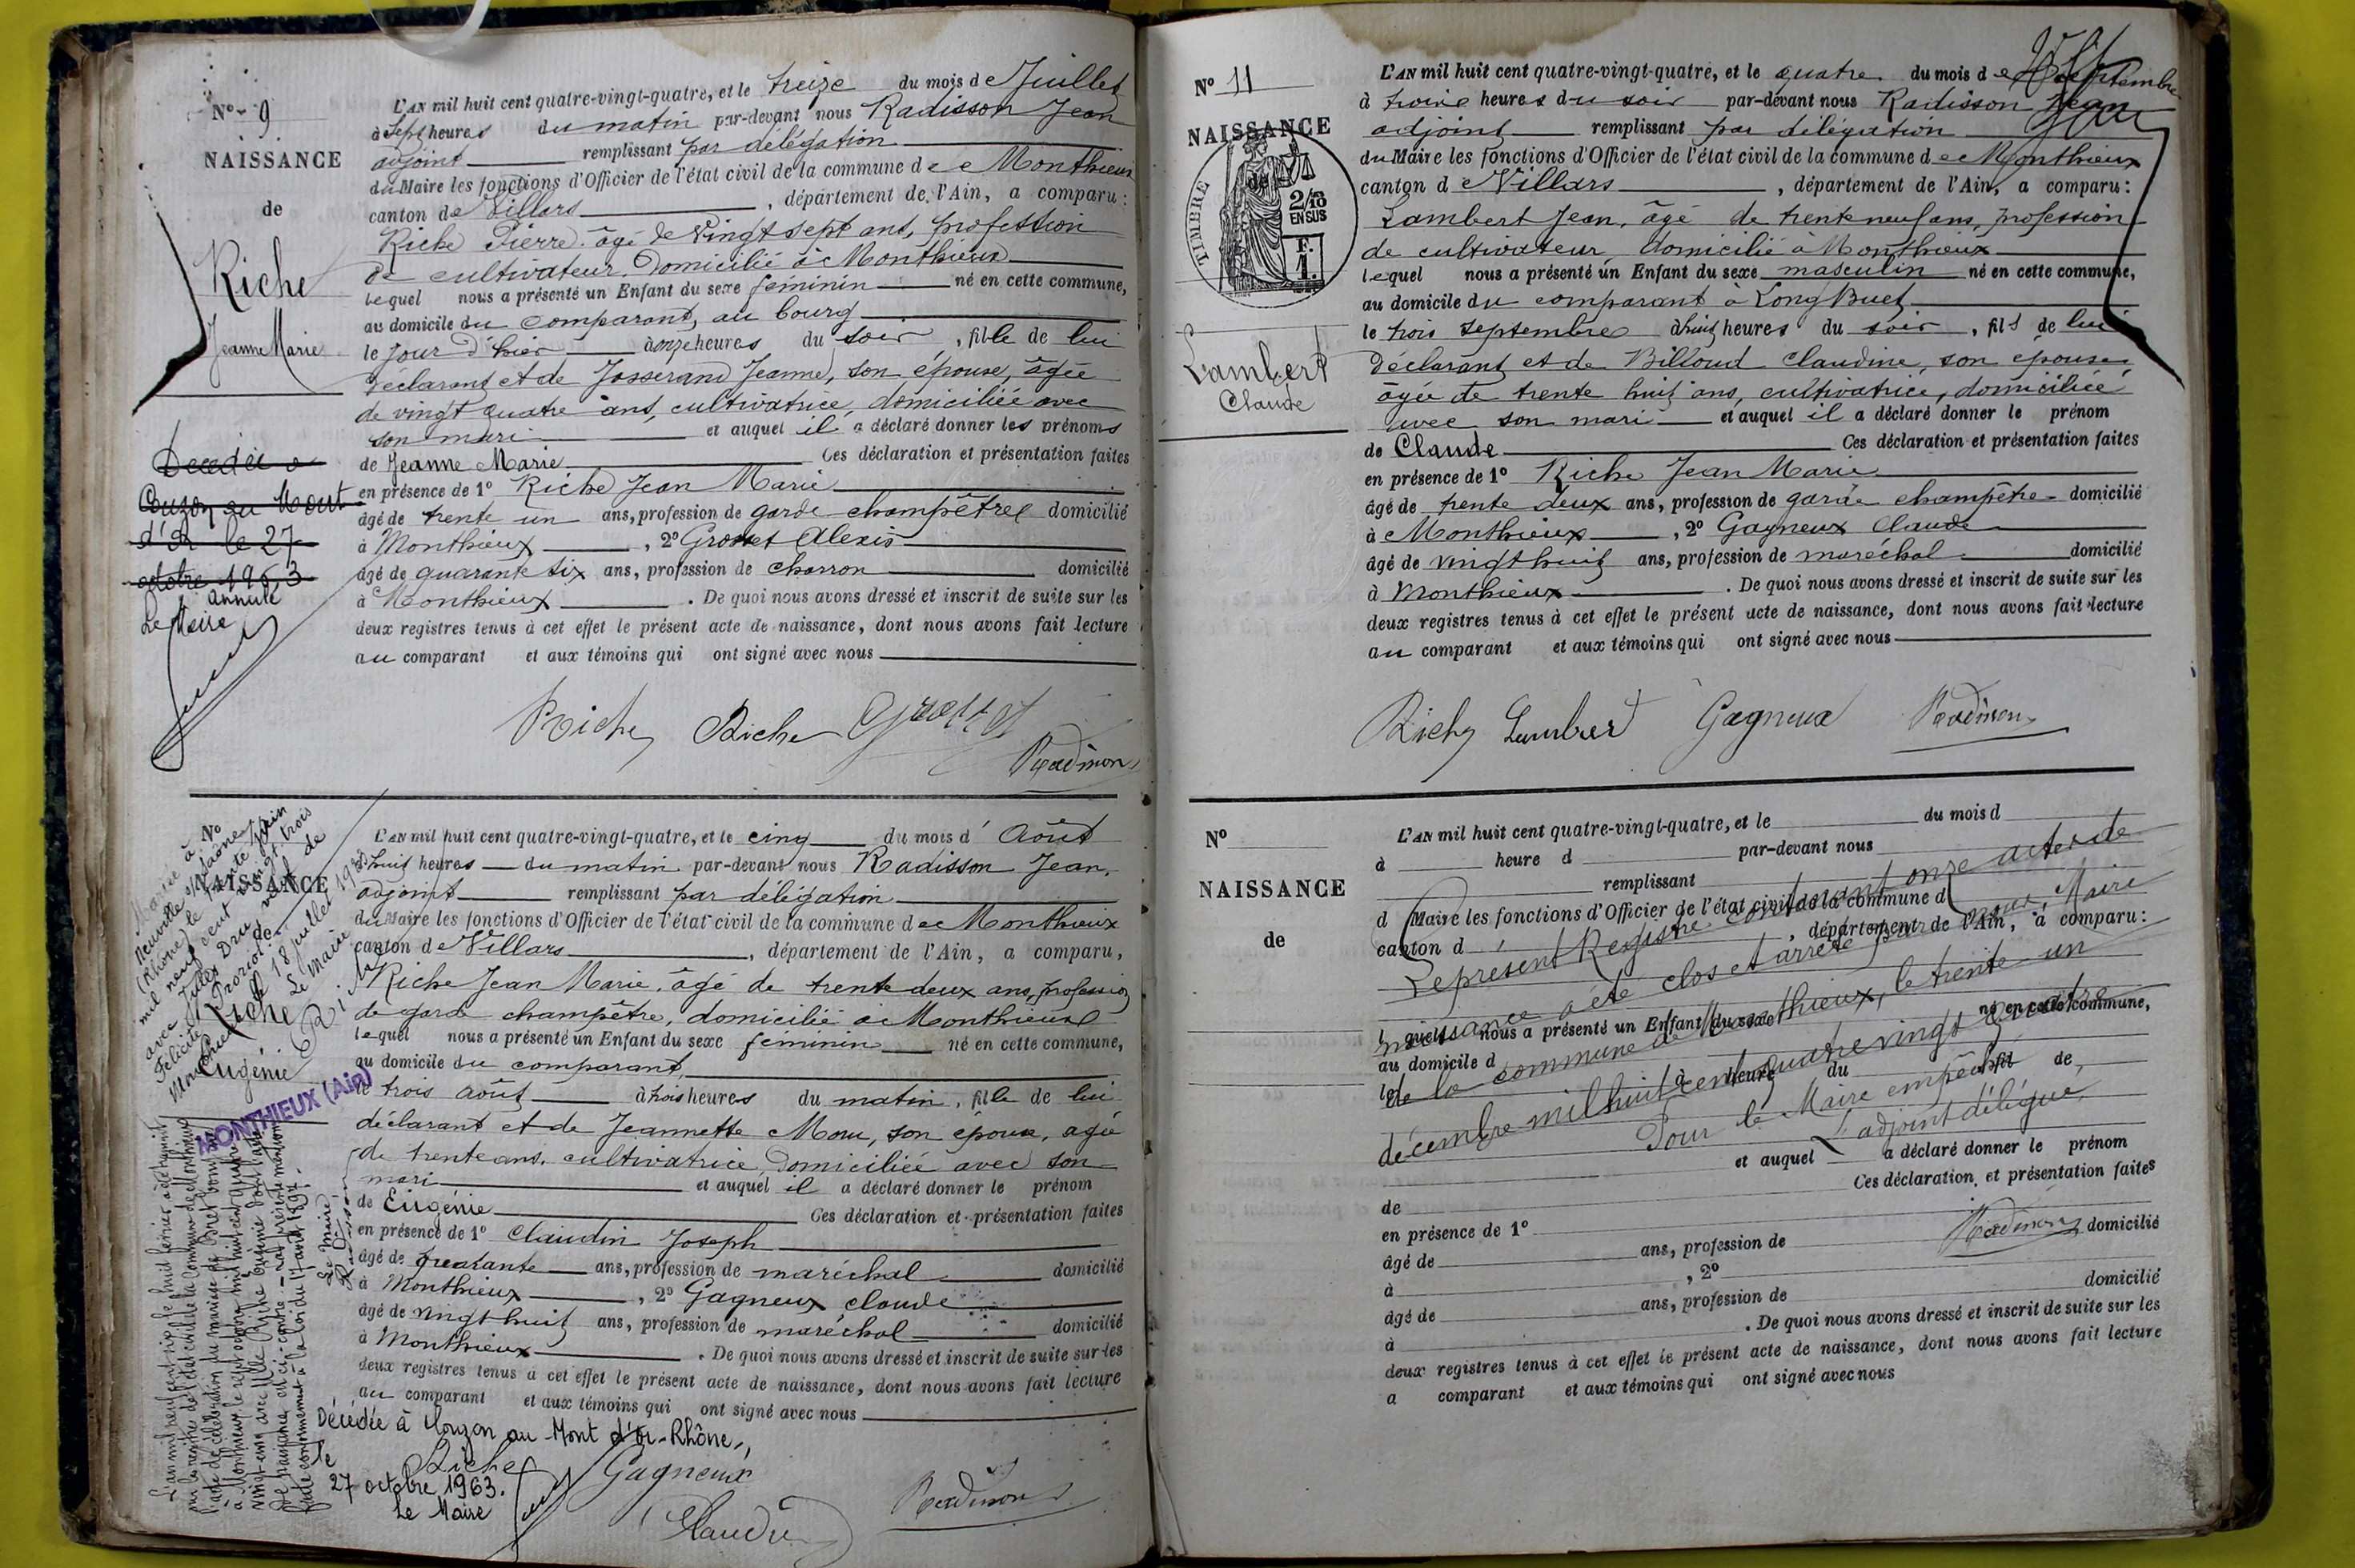 Nº 9
NAISSANCE
de
Riche
Jeanne Marie
Decedée a
Couzon au Mont
d'Or le 27
octobre 1963
annulé
Le Maire
L'AN mil huit cent quatre-vingt-quatre, et le treize du mois de Juillet
à Sept heures du matin par-devant nous Radisson Jean
adjoint remplissant par délégation
du Maire les fonctions d'Officier de l'état civil de la commune de Monthieux
canton de Villars, département de l'Ain, a comparu :
Riche Pierre âgé de vingt sept ans, profession
de cultivateur domicilié à Monthieux
lequel nous a présenté un Enfant du sexe féminin né en cette commune,
au domicile du comparant, au bourg
le jour d'hier à onze heures du soir, fille de lui
déclarant et de Josserand Jeanne, son épouse, âgée
de vingt quatre ans, cultivatrice, domiciliée avec
son mari et auquel il a déclaré donner les prénoms
de Jeanne Marie Ces déclaration et présentation faites
en présence de 1º Riche Jean Marie
âgé de trente un ans, profession de garde champêtre domicilié
à Monthieux, 2º Grosset Alexis
âgé de quarante six ans, profession de charron domicilié
à Monthieux. De quoi nous avons dressé et inscrit de suite sur les
deux registres tenus à cet effet le présent acte de naissance, dont nous avons fait lecture
au comparant et aux témoins qui ont signé avec nous
Riche Riche Grosset
Radisson
Nº
NAISSANCE
de
Riche
Eugénie
Mariée à
Neuville s/ Saône
(Rhône) le trente juin
mil neuf cent vingt trois
avec Jules Dru, veuf de
Félicité
18 juillet
Le Maire
MONTHIEUX (Ain)
L'AN mil huit cent quatre-vingt-quatre, et le cinq du mois d'Août
à huit heures du matin par-devant nous Radisson Jean,
adjoint remplissant par délégation
du Maire les fonctions d'Officier de l'état civil de la commune de Monthieux
canton de Villars, département de l'Ain, a comparu,
Riche Jean Marie, âgé de trente deux ans, profession
de garde champêtre, domicilié à Monthieux
lequel nous a présenté un Enfant du sexe féminin né en cette commune,
au domicile du comparant,
le trois août à trois heures du matin, fille de lui
déclarant et de Jeannette Monu, son épouse, agée
de trente ans, cultivatrice, domiciliée avec son
mari et auquel il a déclaré donner le prénom
de Eugénie Ces déclaration et présentation faites
en présence de 1º Claudin Joseph
âgé de quarante ans, profession de maréchal domicilié
à Monthieux, 2º Gagneux claude
âgé de vingt huit ans, profession de maréchal domicilié
à Monthieux. De quoi nous avons dressé et inscrit de suite sur les
deux registres tenus à cet effet le présent acte de naissance, dont nous avons fait lecture
au comparant et aux témoins qui ont signé avec nous
Décédée à Couzon au Mont d'Or-Rhône,
le
27 octobre 1963.
Le Maire
Riche Gagneux
Claudin Radisson
Le Maire
Radisson
Nº 11
NAISSANCE
de
TIMBRE
2/10
EN SUS
F.
1.
Lambert
Claude
L'AN mil huit cent quatre-vingt-quatre, et le quatre du mois de Septembre
à troire heures du soir par-devant nous Radisson Jean
adjoint remplissant par délégation
du Maire les fonctions d'Officier de l'état civil de la commune de Monthieux
canton de Villars, département de l'Ain, a comparu :
Lambert Jean, âgé de trente neuf ans, profession
de cultivateur domicilié à Monthieux
lequel nous a présenté un Enfant du sexe masculin né en cette commune,
au domicile du comparant à Long Buet
le trois septembre à huit heures du soir, fils de lui
déclarant et de Billoud Claudine, son épouse,
âgée de trente huit ans, cultivatrice, domiciliée
avec son mari et auquel il a déclaré donner le prénom
de Claude Ces déclaration et présentation faites
en présence de 1º Riche Jean Marie
âgé de trente deux ans, profession de garde champêtre domicilié
à Monthieux, 2º Gagneux Claude
âgé de vingt huit ans, profession de maréchal domicilié
à Monthieux. De quoi nous avons dressé et inscrit de suite sur les
deux registres tenus à cet effet le présent acte de naissance, dont nous avons fait lecture
au comparant et aux témoins qui ont signé avec nous
Riche Lambert Gagneux Radisson
Nº
NAISSANCE
de
L'AN mil huit cent quatre-vingt-quatre, et le du mois d
à heure d par-devant nous
remplissant
d Maire les fonctions d'Officier de l'état civil de la commune d
canton d, département de l'Ain, a comparu :
Le présent Registre contenant onze actes de
naissance a été clos et arrêté par nous, Maire
de la commune de Monthieux, le trente un
décembre mil huit cent quatre vingt quatre
Pour le Maire empêché
L'adjoint délégué,
l quel nous a présenté un Enfant du sexe né en cette commune,
au domicile d
le à heure du, fil de
et auquel a déclaré donner le prénom
de Ces déclaration et présentation faites
en présence de 1º
Radisson
âgé de ans, profession de domicilié
à, 2º
âgé de ans, profession de domicilié
à. De quoi nous avons dressé et inscrit de suite sur les
deux registres tenus à cet effet le présent acte de naissance, dont nous avons fait lecture
a comparant et aux témoins qui ont signé avec nous